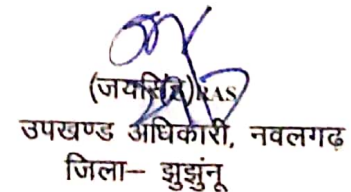 (जयसिंह)RAS
उपखण्ड अधिकारी, नवलगढ़
जिला– झुझुंनू